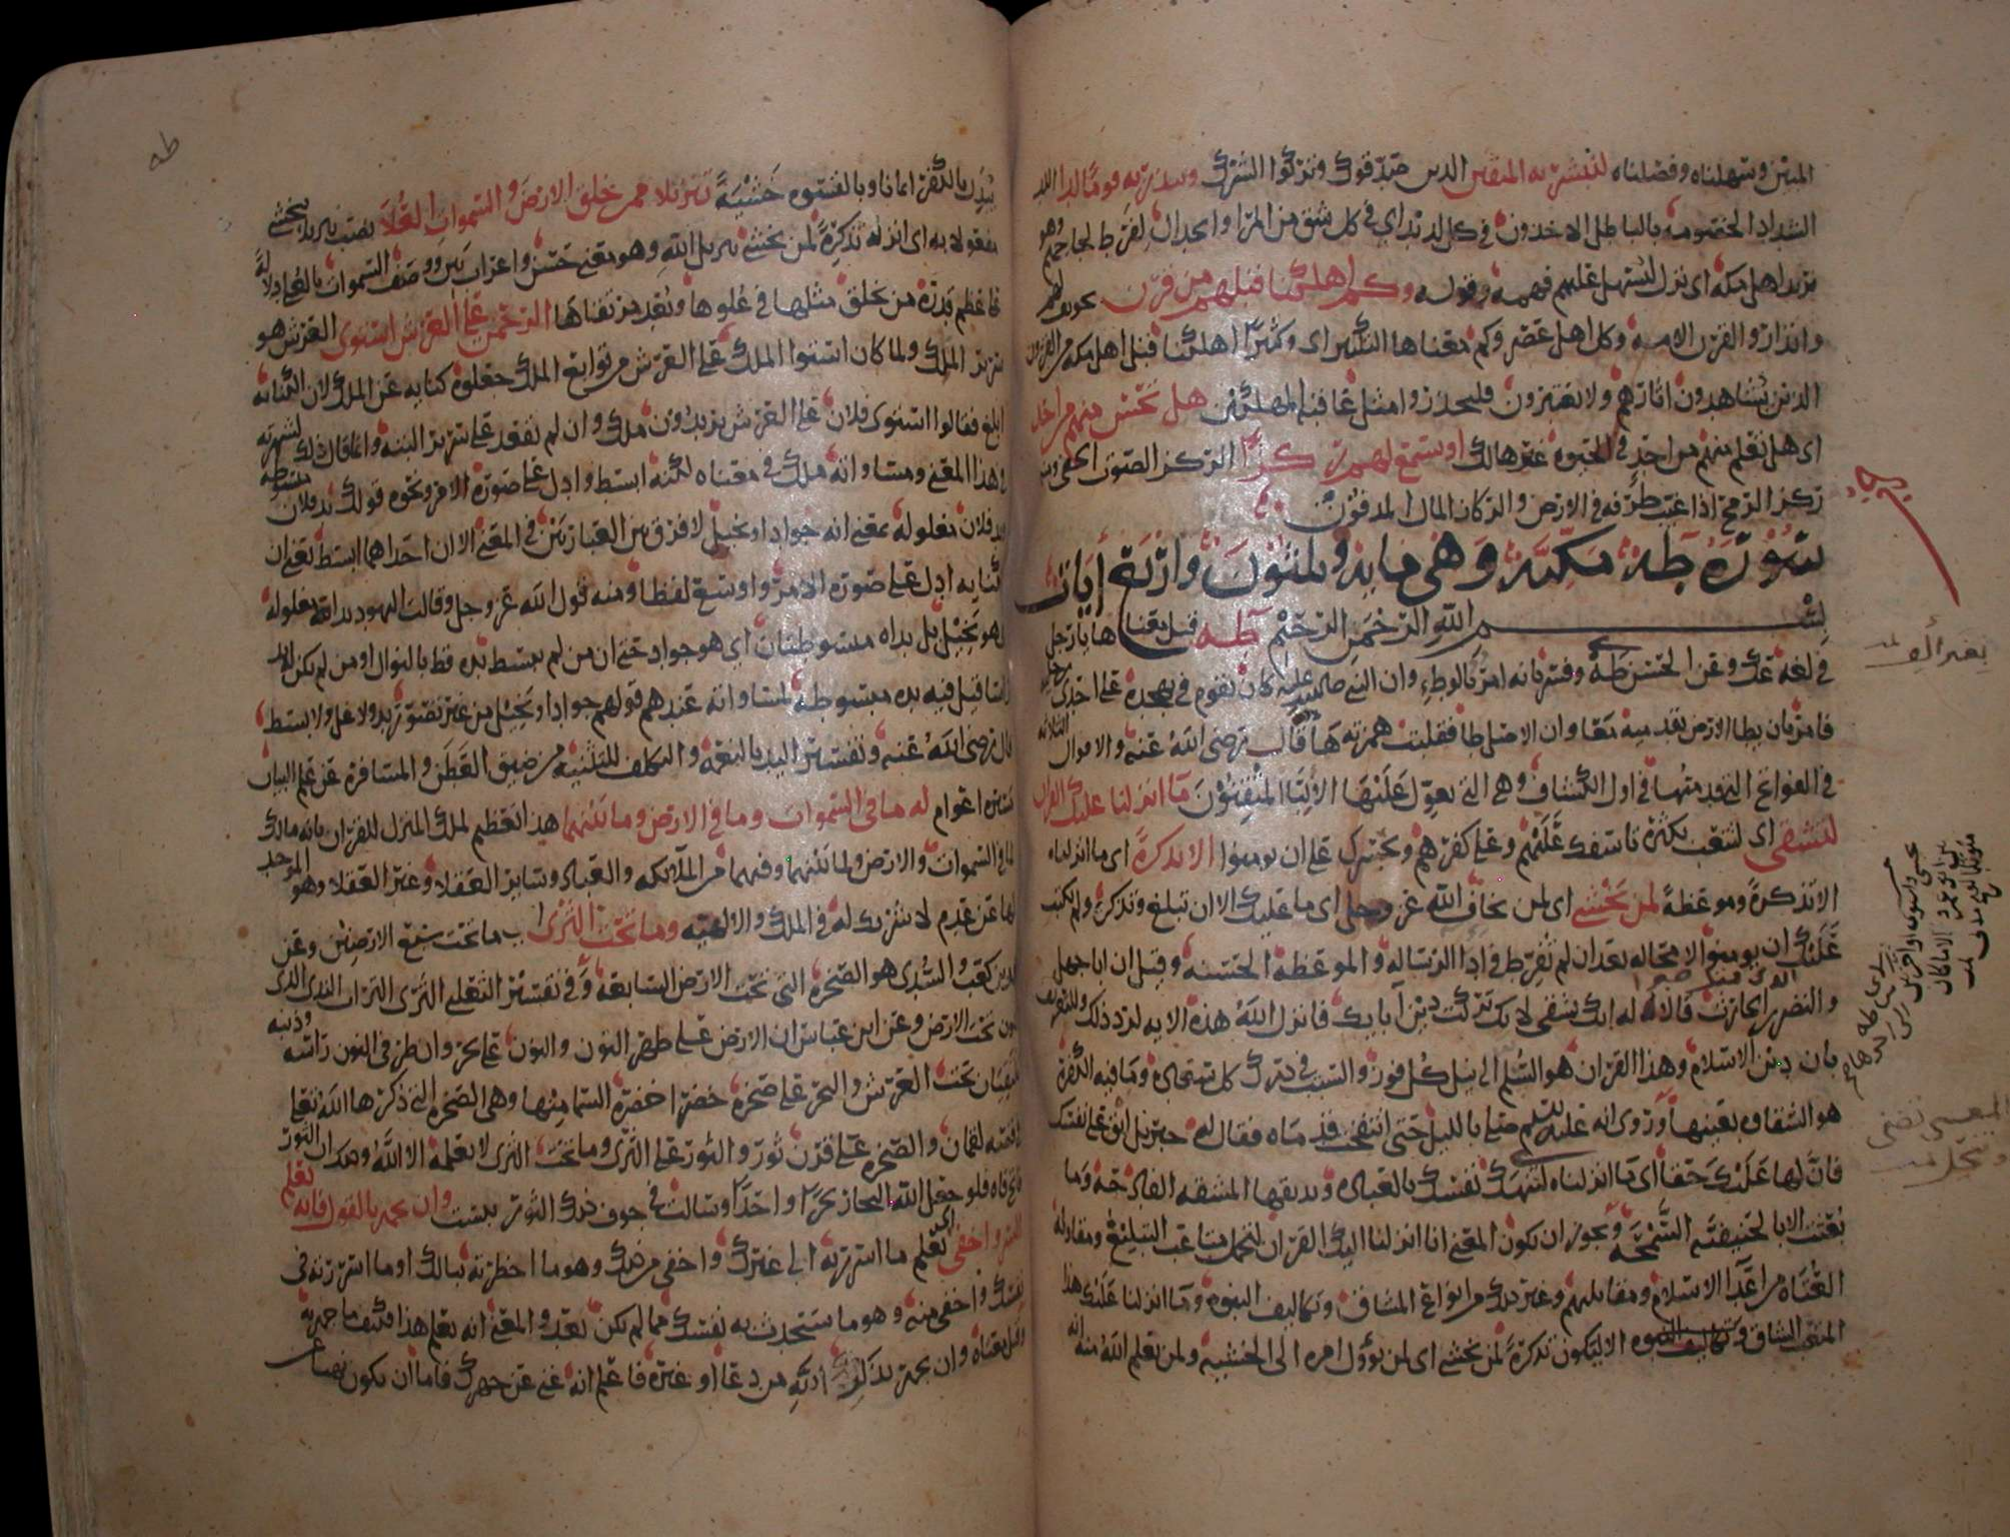 المبين وسهلناه وفصلناه لتبشر به المتقين الذين صدقوك وتركوا الشرك وتنذر به قوما لدا اللد
الشداد الخصومة بالباطل الاخذون في كل لديد اي في كل شق من المرا والجدال لفرط لجاجهم وهو
يريد اهل مكة اي نزل ليسهل عليهم فهمه وقوله وكم اهلكنا قبلهم من قرن تخويف لهم
وانذار والقرن الامة وكل اهل عصر وكم معناها التكثير اى وكثيرا اهلكنا قبل اهل مكة من القرون
الذين يشاهدون اثارهم ولا يعتبرون فليحذروا مثل عاقبة المهلكين هل تحس منهم من احد
اى هل تعلم منهم من احد في الحيوة غير هالك او تسمع لهم ركزا الركز الصوت الخفي ومنه
ركز الرمح اذا غيب طرفه في الارض والركاز المال المدفون
سورة طه مكية وهي ماية وثلثون واربع ايات
بسم الله الرحمن الرحيم طه قيل معنا ها يا رجل
في لغة عك وعن الحسن طه وفسر بانه امر بالوطء وان النبي صلى الله عليه كان يقوم في تهجده على احدى رجليه
فامر بان يطا الارض بقدميه معا وان الاصل طا فقلبت همزته ها قال رضي الله عنه والاقوال الثلاثة
في الفواتح التي قدمتها في اول الكشاف هي التي يعول عليها الالبا المتقنون ما انزلنا عليك القران
لتشقى اى لتتعب بكثرة تاسفك عليهم وعلى كفرهم وتحسرك على ان يومنوا الا تذكرة اى ما انزلناه
الا تذكرة وموعظة لمن يخشى اى لمن يخاف الله عز وجل اى ما عليك الا ان تبلغ وتذكر ولم يكتب
عليك ان يومنوا لا محالة بعد ان لم تفرط في ادا الرسالة والموعظة الحسنة وقيل ان ابا جهل
والنضر بن الحارث قالا له انك شقى لانك تركت دين ابايك فانزل الله هذه الاية لرد ذلك والتعريف
بان دين الاسلام وهذا القران هو السلم الى نيل كل فوز والسبب في درك كل سعادة وما فيه الكفرة
هو الشقاوة بعينها وروى انه عليه السلم صلى بالليل حتى انتفخت قدماه فقال له جبريل ابق على نفسك
فان لها عليك حقا اى ما انزلناه لتنهك نفسك بالعبادة وتذيقها المشقة الفادحة وما
بعثت الا بالحنيفية السمحة ويجوز ان يكون المعنى انا انزلنا اليك القران لتحتمل متاعب التبليغ ومقاولة
العتاة من اعدا الاسلام ومقاتلتهم وغير ذلك من انواع المشاق وتكاليف النبوة وما انزلنا عليك هذا
المتعب الشاق الا ليكون تذكرة لمن يخشى اى لمن يؤول امره الى الخشية ولمن يعلم الله منه انه
بغير ألف
طه
يبدل بالكفر ايمانا وبالقسوة خشية تنزيلا ممن خلق الارض والسموات العلا نصب تنزيلا بيخشى
مفعولا به اى انزله تذكرة لمن يخشى تنزيل الله وهو معنى حسن واعراب بين ووصف السموات بالعلى دلالة
على عظم قدرة من يخلق مثلها في علوها وبعد مرتقاها الرحمن على العرش استوى العرش هو
سرير الملك ولما كان استوا الملك على العرش من توابع الملك جعلوه كناية عن الملك لان الكناية
ابلغ فقالوا استوى فلان على العرش يريدون ملك وان لم يقعد على سرير البتة وانما قال ذلك لشهرته
في هذا المعنى ومساواته ملك في معناه لكنه ابسط وادل على صورة الامر ونحوه قولك يد فلان مبسوطة
ويد فلان مغلولة بمعنى انه جواد او بخيل لا فرق بين العبارتين في المعنى الا ان احداهما ابسط بمعنى ان
الكناية ادل على صورة الامر واوسع لفظا ومنه قول الله عز وجل وقالت اليهود يد الله مغلولة
اى هو بخيل بل يداه مبسوطتان اى هو جواد حتى ان من لم يبسط يده قط بالنوال او من لم يكن له يد
راسا قيل فيه يده مبسوطة لمساواته عندهم قولهم جواد او بخيل من غير تصور يد ولا غل ولا بسط
قال رضي الله عنه وتفسير اليد بالنعمة والتكلف للتثنية من ضيق العطن والمسافرة عن علم البيان
مسيرة اعوام له ما في السموات وما في الارض وما بينهما هذا تعظيم لملك المنزل للقران بانه مالك
لما في السموات والارض ولما بينهما وفيهما من الملائكة والعباد وساير العقلا وغير العقلا وهو الموجد
لها عن عدم لا شريك له في الملك والالهية وما تحت الثرى ب ما تحت سبع الارضين وعن
ابن كعب والسدى هو الصخرة التى تحت الارض السابعة وفي تفسير الثعلبي الثرى التراب الندى الذى
يكون تحت الارض وعن ابن عباس ان الارض على ظهر النون والنون على بحر وان طرفي النون راسه وذنبه
يلتقيان تحت العرش والبحر على صخرة خضرا خضرة السما منها وهى الصخرة التي ذكرها الله تعلى
في قصة لقمان والصخرة على قرن ثور والثور على الثرى وما تحت الثرى لا يعلمه الا الله وذلك ان الثور
فاتح فاه فلو جعل الله البحار بحرا واحدا وسالت في جوف ذلك الثور يبست وان تجهر بالقول فانه يعلم
السر واخفى اى يعلم ما اسررته الى غيرك واخفى من ذلك وهو ما اخطرته ببالك او ما اسررته في
نفسك واخفى منه وهو ما ستحدث به نفسك مما لم يكن بعد والمعنى انه يعلم هذا فكيف ما جهر به
وقيل معناه وان تجهر بذكر الله من دعا او غيره فاعلم انه غني عن جهرك فاما ان يكون نهيا عن